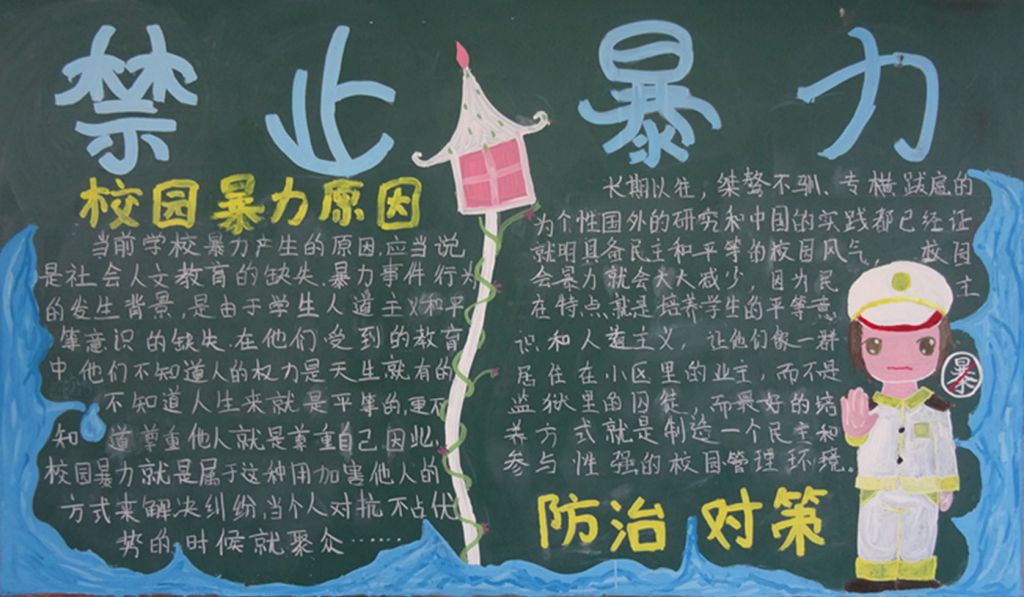 禁止暴力
校园暴力原因
当前学校暴力产生的原因,应当说
是社会人文教育的缺失.暴力事件行为
的发生背景,是由于学生人道主义和平
等意识的缺失.在他们受到的教育
中,他们不知道人的权力是天生就有的
不知道人生来就是平等的,更不
知道尊重他人就是尊重自己.因此,
校园暴力就是属于这种用加害他人的
方式来解决纠纷,当个人对抗不占优
势的时候就聚众……
长期以往,桀骜不驯、专横跋扈的
为个性国外的研究和中国的实践都已经证
就明具备民主和平等的校园风气,校园
会暴力就会大大减少,因为民主
在特点就是培养学生的平等意
识和人道主义,让他们像一群
居住在小区里的业主,而不是
监狱里的囚徒,而最好的培
养方式就是制造一个民主和
参与性强的校园管理环境。
暴
防治对策